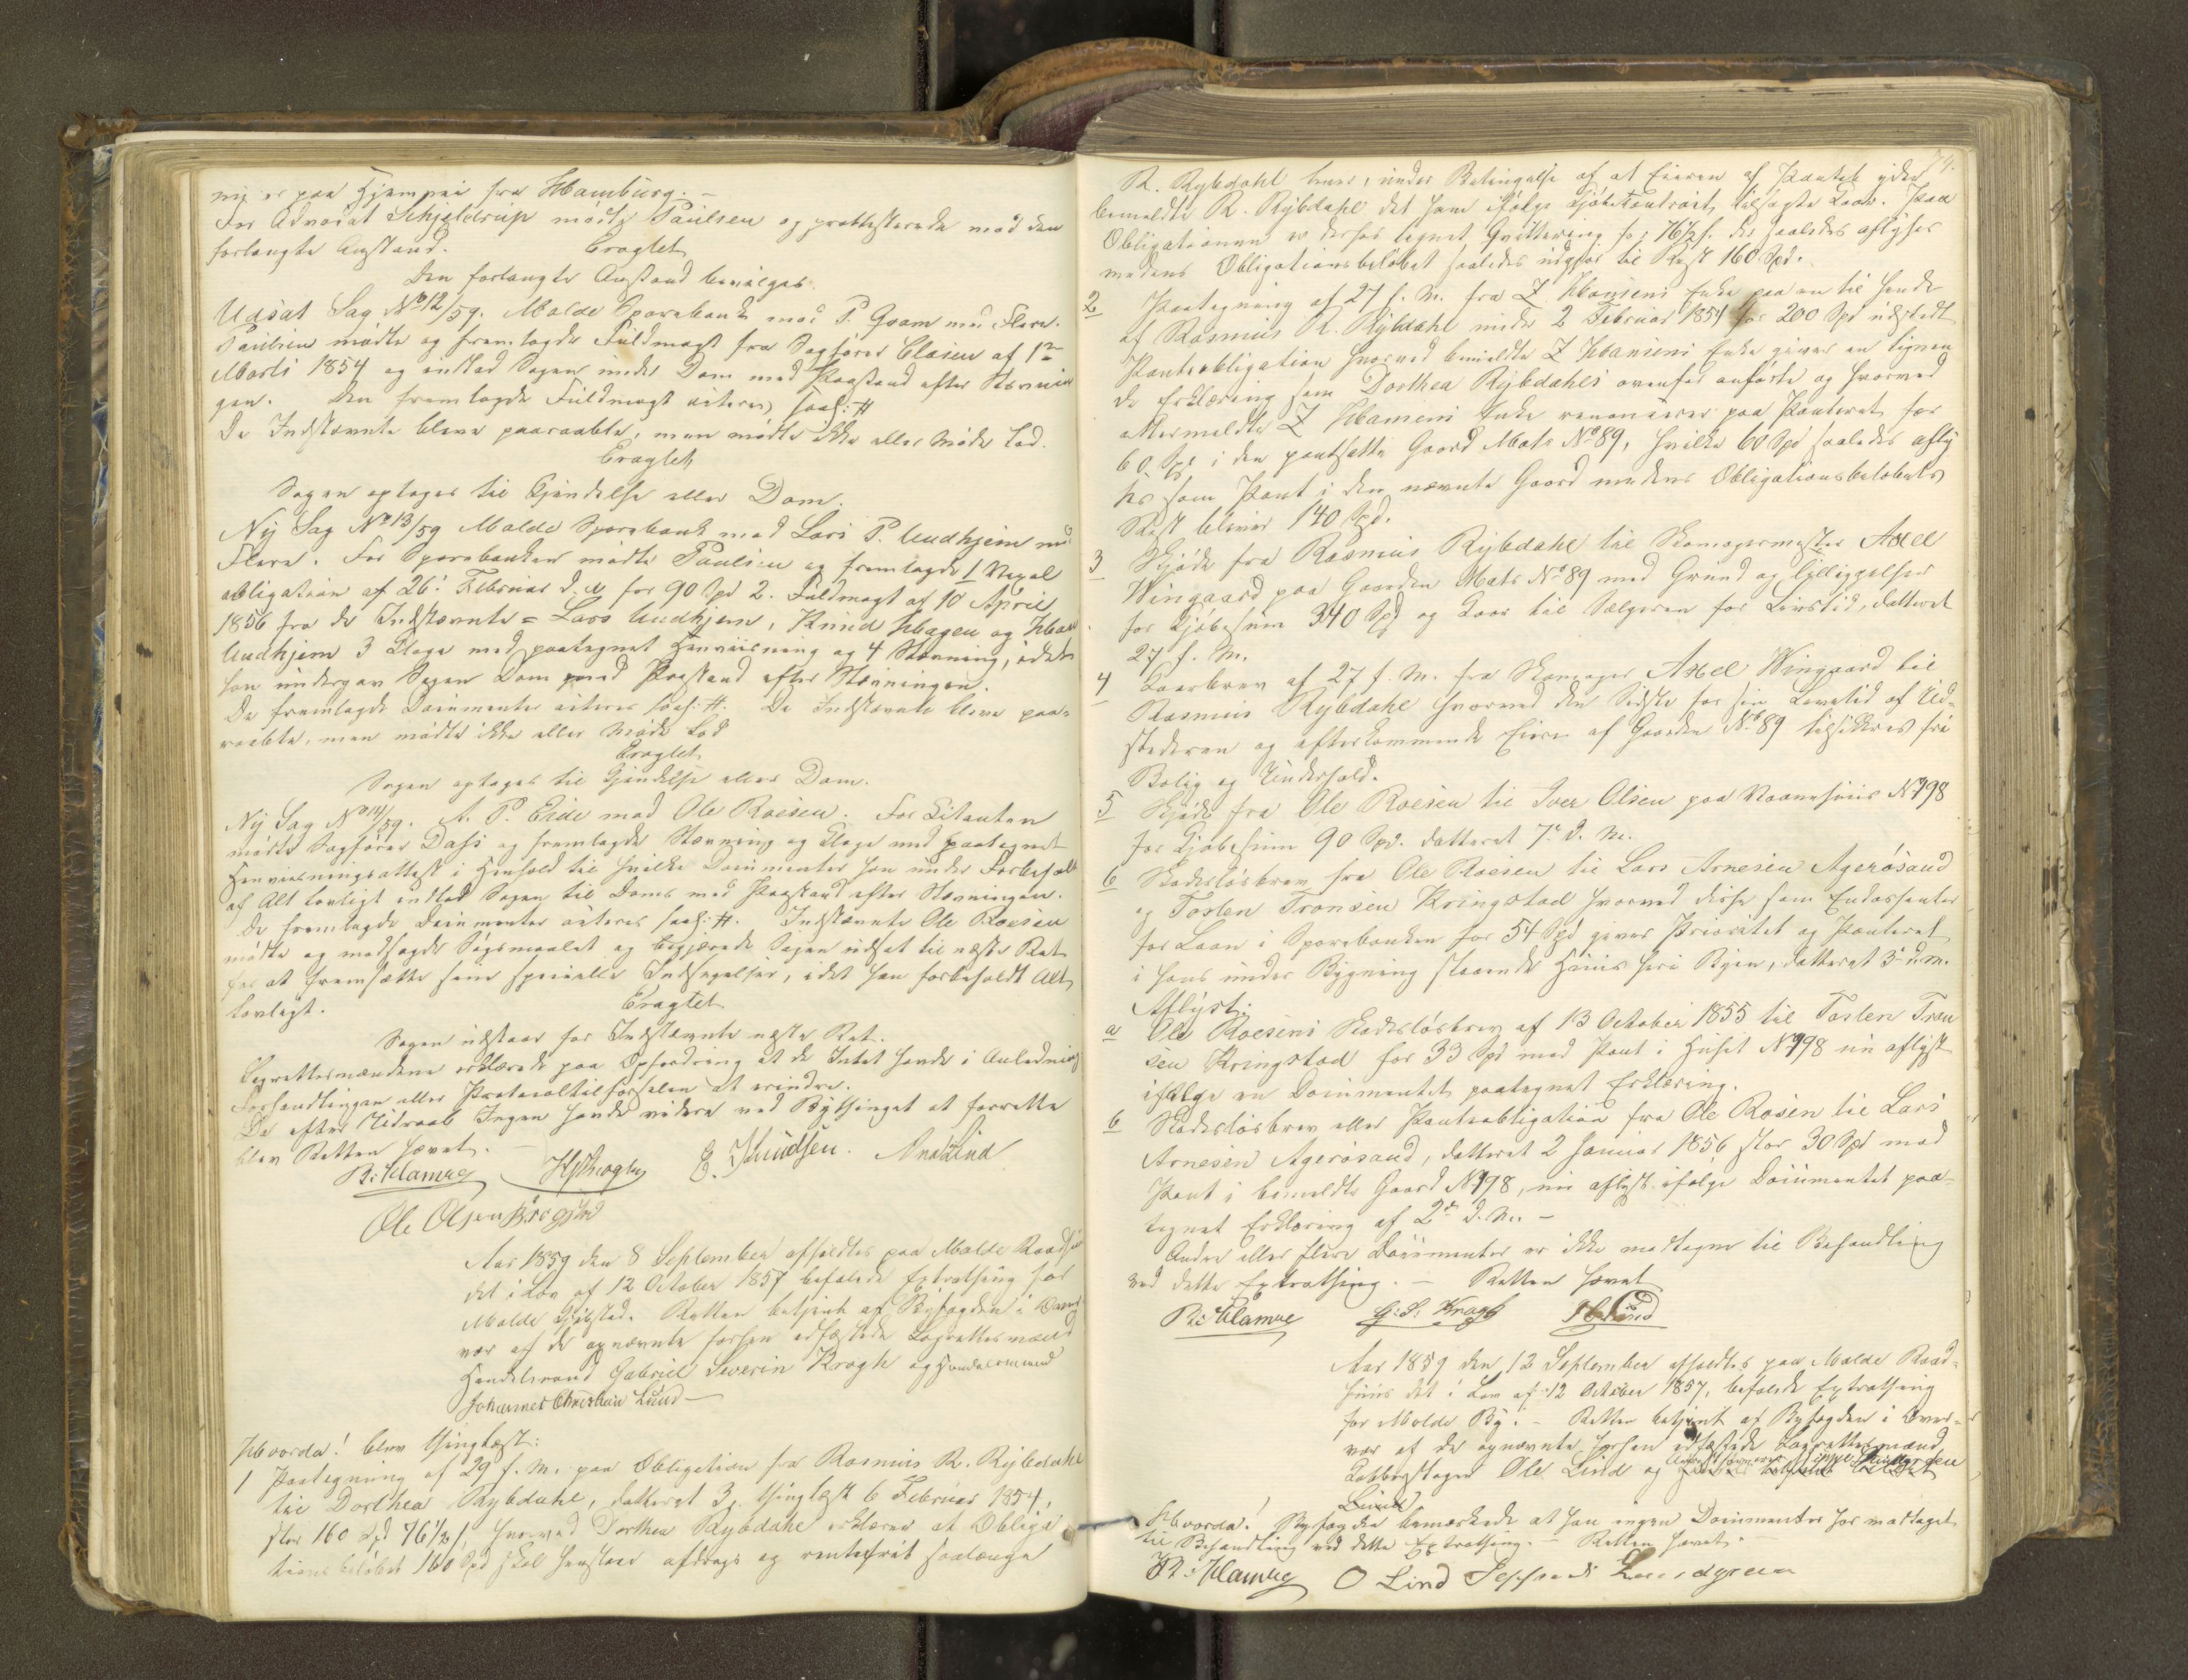 nu er paa Hjemvei fra Hamburg. –
For Advocat Schjelderup mødte Paulsen og protesterede mod den
forlangte Anstand.
Eragtet
Den forlangte Anstand bevilges.
Udsat Sag No 12/59. Molde Sparebank mod P. Gram med Flere.
Paulsen mødte og fremlagde Fuldmagt fra Sagfører Clasen af 1ste
Marts 1854 og indlod Sagen under Dom med Paastand efter Stævnin
gen. Den fremlagde Fuldmagt acteres saal: #
De Indstævnte bleve paaraabte, men mødte ikke eller Møde lod.
Eragtet
Sagen optages til Kjendelse eller Dom.
Ny Sag No 13/59 Molde Sparebank mod Lars P. Audhjem med
Flere. For Sparebanken mødte Paulsen og fremlagde 1 Vexel
obligation af 26: Februar d. A. for 90 Spd 2. Fuldmagt af 10 April
1856 fra de Indstævnte = Lars Audhjem, Knud Hagen og
Audhjem 3 Klage med paategnet Henviisning og 4 Stævning, idet
han undergav Sagen Dom med Paastand efter Stævningen.
De fremlagde Documenter acteres saal: #. De Indstævnte bleve paa-
raabte, men mødte ikke eller Møde lod
Eragtet
Sagen optages til Kjendelse eller Dom.
Ny Sag No 14/59. A. P. Eide mod Ole Roesen. For Citanten
mødte Sagfører Dahs og fremlagde Stævning og Klage med paategnet
Henviisningsattest i Henhold til hvilke Documenter han under Forbehold
af Alt lovligt indlod Sagen til Doms med Paastand efter Stævningen.
De fremlagde Documenter acteres saal: #. Indstævnte Ole Roesen
mødte og modsagde Søgsmaalet og begjærede Sagen udsat til næste Ret
for at fremsætte sine specielle Indsigelser, idet han forbeholdt Alt
lovligt.
Eragtet
Sagen udstaar for Indstævnte næste Ret.
Lagrettesmændene erklærede paa Opfordring at de Intet havde i Anledning
Forhandlingen eller Protocoltilførselen at erindre.
Da efter Udraab Ingen havde videre ved Bythinget at forrette
blev Retten hævet. –
R: Klamue E. Knudsen.
Ole Olsen
Aar 1859 den 8 September afholdtes paa Molde Raadhus
det i Lov af 12 October 1857 befalede Extrathing for
Molde Kjøbsted. Retten betjent af Byfogden i Over
vær af de opnævnte forhen edfæstede Lagrettesmænd
Handelsmand Gabriel Severin Krogh og Handelsmand
Johannes Christian Lund –
Hvorda! blev thinglæst:
1 Paategning af 29 f. M. paa Obligation fra Rasmus R. Rybdahl
til Dorthea Rybdahl, datteret 3, thinglæst 6 Februar 1854,
stor 160 Spd 76½ s hvorved Dorthea Rybdahl erklærer at Obliga
tionsbeløbet 160 Spd skal henstaae afdrags og rentefrit saalænge
74.
R. Rybdahl lever, under Betingelse af at Eieren af Pantet yder
bemeldte R. Rybdahl det ham ifølge Kjøbekontract tilsagte Kaar. Paa
Obligationen er derhos tegnet Qvittering for 76½ s. der saaledes aflyses
medens Obligationsbeløbet saaledes udgjør til Rest 160 Spd.
2 Paategning af 27 f. M. fra Z Hansens Enke paa en til hende
af Rasmus R. Rybdahl under 2 Februar 1854 for 200 Spd udstedt
Panteobligation hvorved bemeldte Z Hansens Enke giver en lignen
de Erklæring som Dorthea Rybdahls ovenfor anførte og hvorved
ettermeldte Z Hansens Enke renoncerer paa Panteret for
60 Spd i den pantsatte Gaard Matr No 89, hvilke 60 Spd saaledes afly
ses som Pant i den nævnte Gaard medens Obligationsbeløbets
Rest bliver 140 Spd.
3 Skjøde fra Rasmus Rybdahl til Skomagermester Axel
Wingaard paa Gaarden Matr No 89 med Grund og Tilliggelser
for Kjøbesum 340 Spd og Kaar til Sælgeren for Livstid, datteret
27 f. M.
4 Kaarbrev af 27 f. M. fra Skomager Axel Wingaard til
Rasmus Rybdahl hvorved den Sidste for sin Levetid af Ud-
stederen og efterkommende Eiere af Gaarden No 89 tilsikkres fri
Bolig og Underhold.
5 Skjøde fra Ole Roesen til Iver Olsen paa Vaanehuus No 98
for Kjøbesum 90 Spd. datteret 7de d. M.
6 Skadesløsbrev fra Ole Roesen til Lars Arnesen Agerøsund
og Tosten Tronsen Kringstad hvorved disse som Endossenter
for Laan i Sparebanken for 54 Spd giver Prioritet og Panteret
i hans under Bygning staaende Huus heri Byen, datteret 3 d. M.
Aflyst:
a Ole Roesens Skadesløsbrev af 13 October 1855 til Tosten Tron
sen Kringstad for 33 Spd med Pant i Huset No 98 nu aflyst
ifølge en Documentet paategnet Erklæring.
b Skadesløsbrev eller Panteobligation fra Ole Rosen til Lars
Arnesen Agerøsund, datteret 2 Januar 1856 stor 30 Spd med
Pant i bemeldte Gaard No 98, nu aflyst ifølge Documentet paa-
tegnet Erklæring af 2den d. M. –
Andre eller flere Documenter er ikke modtagne til Behandling
ved dette Extrathing. – Retten hævet
R: Klamue G. S. Krogh Lund
Aar 1859 den 12 September afholdtes paa Molde Raad-
huus det i Lov af 12 October 1857, befalede Extrathing
for Molde By. – Retten betjent af Byfogden i Over-
vær af de opnævnte forhen edfæstede Lagrettesmænd
Kobberslager Ole Lind og
Lund
Hvorda! Byfogden bemærkede at han ingen Documenter har modtaget
til Behandling ved dette Extrathing. – Retten hævet.
R: Klamue O Lind Lundgreen